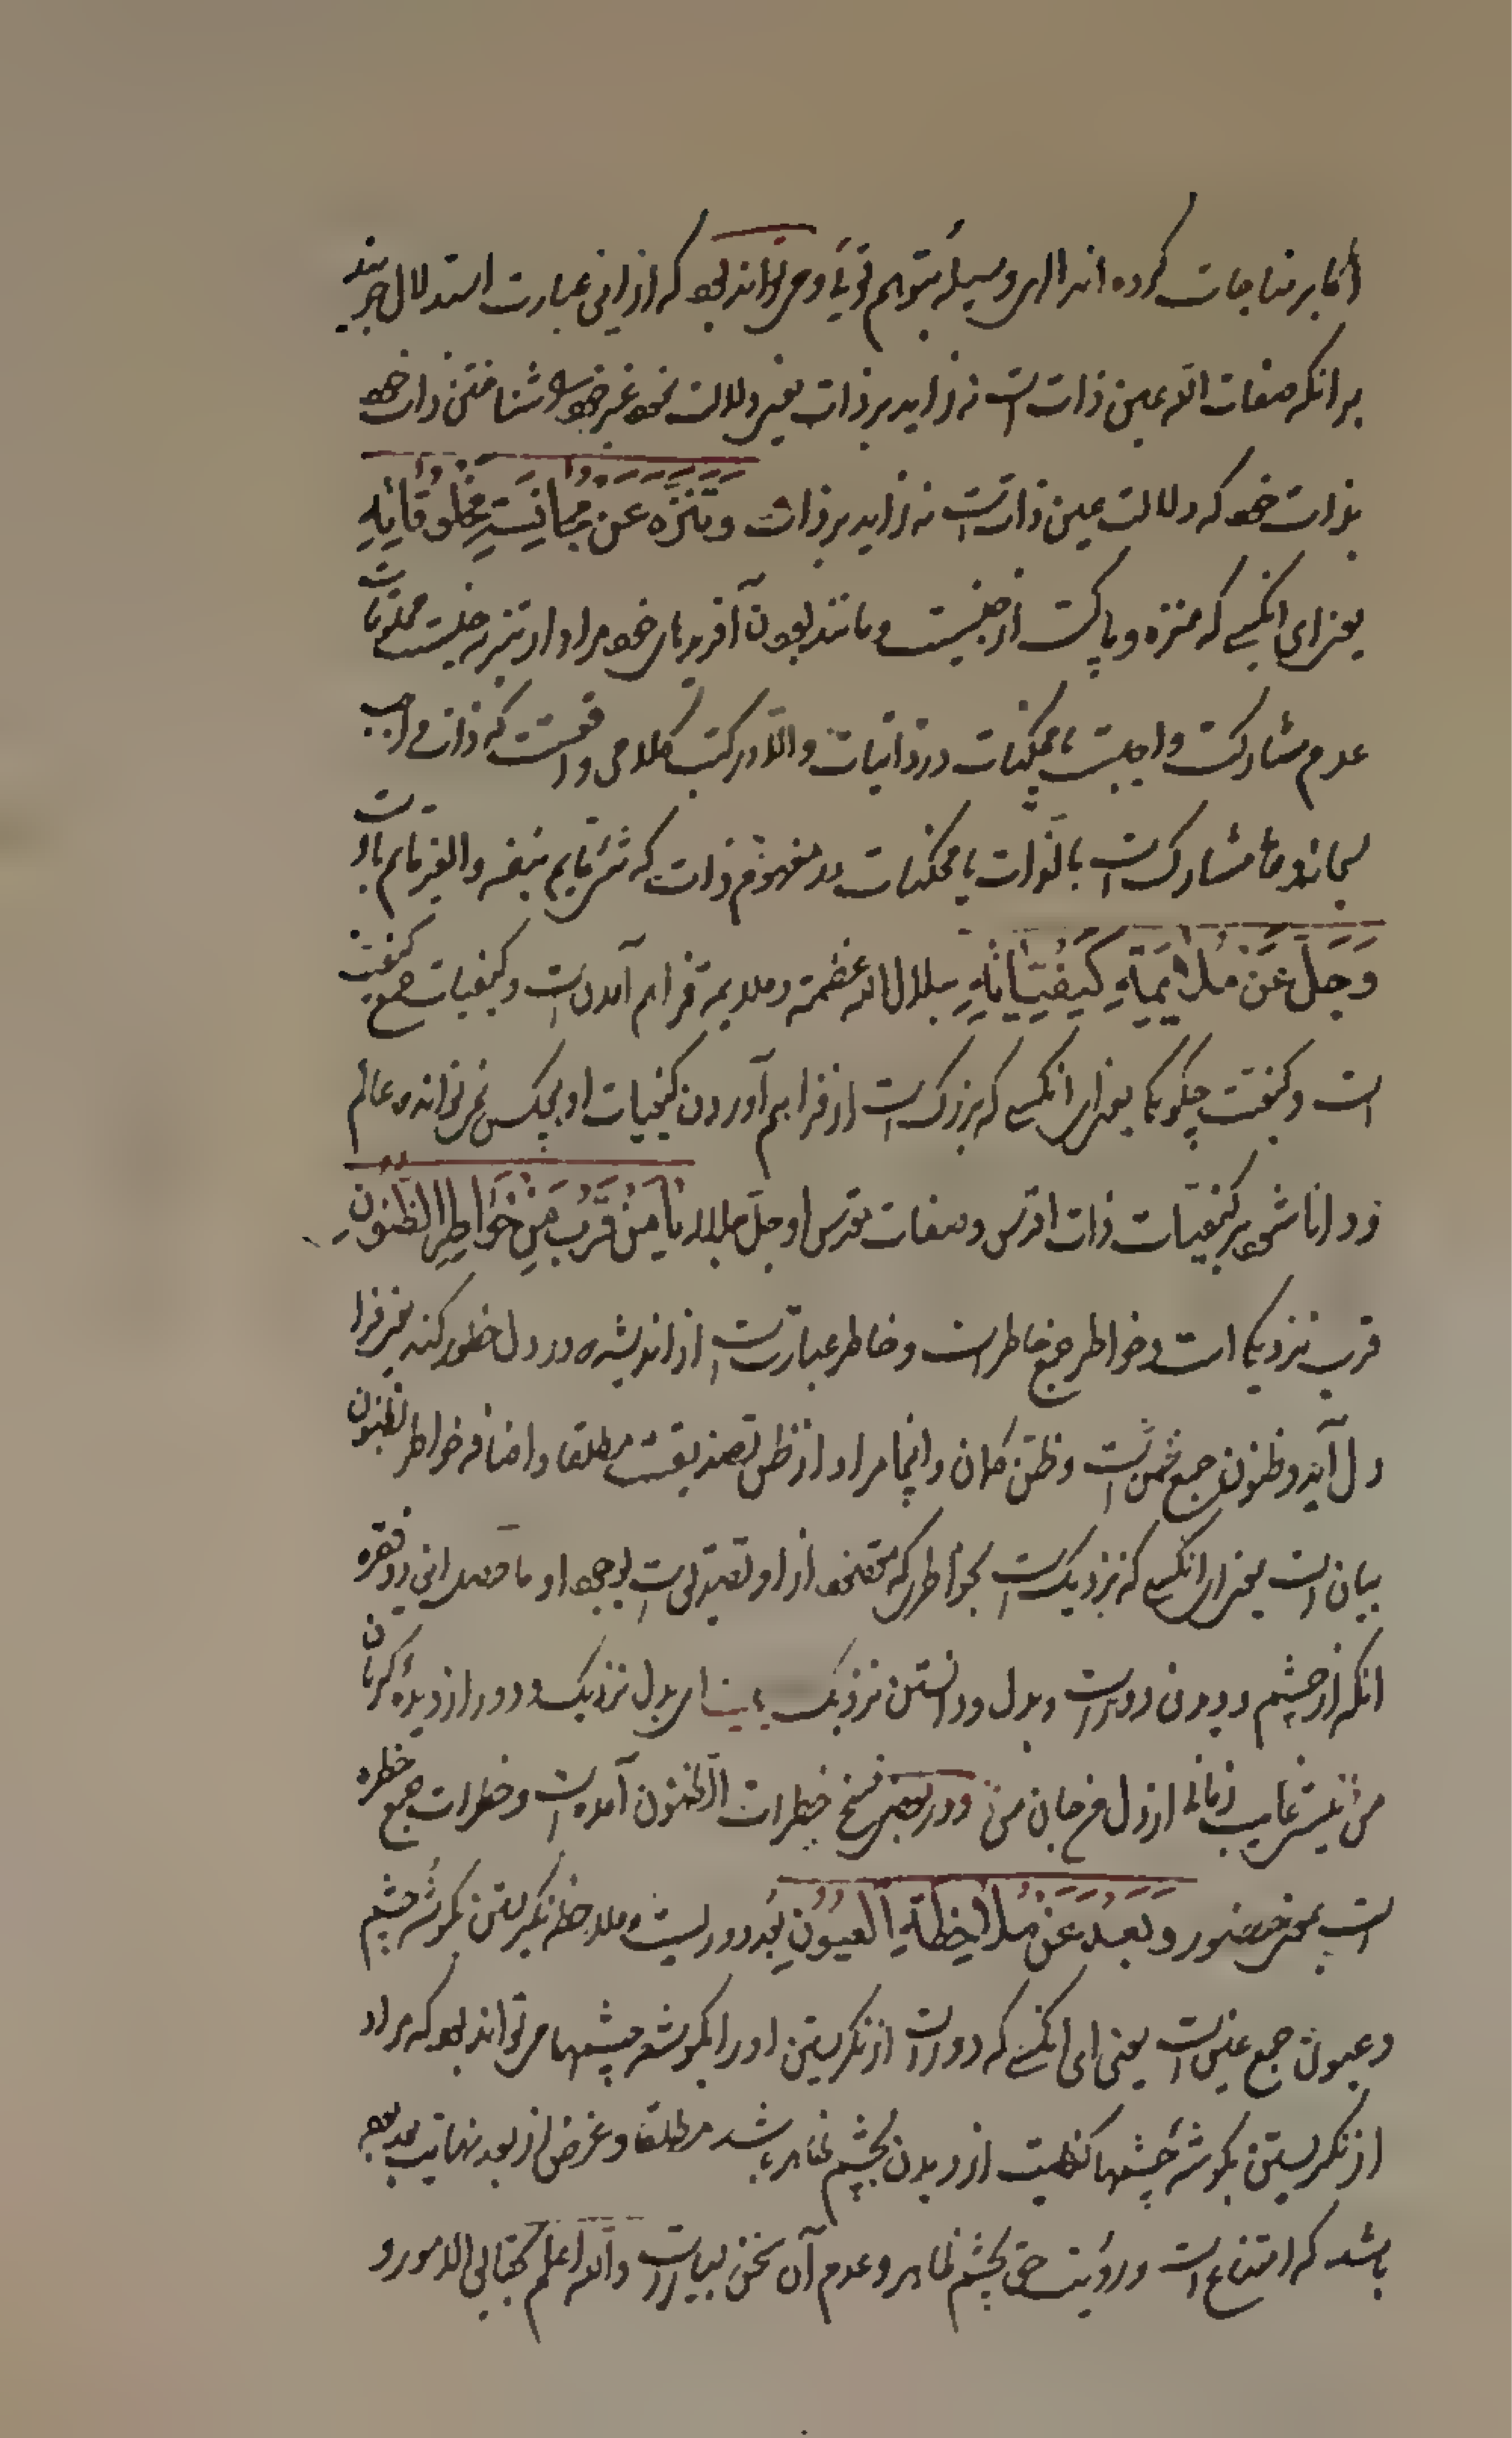 اکابر مناجات کرده اند الهی وسیله بتوهم توئی و می تواند بود که از این عبارت استدلال جویند
بر انکه صفات الله عین ذات است نه زاید بر ذات یعنی دلالت نحو غیر خود شناختن ذات خود
بذات خود که دلالت عین ذات است نه زاید بر ذات وَتَنَزَّهَ عَنْ مُجانَسَةِ مَخْلُوقاتِهِ
یعنی ای انکسی که منزه و پاکست از جنسیت و مانند بودن آفریدهای خود مراد از تنزه جنسیت مخلوقات
عدم مشارکت واجبست با ممکنات در ذاتیات والا در کتب کلامی واقعست که ذات واجب
سبحانه و تعا مشارک است بالذات با ممکنات در مفهوم ذات که شیء قایم بنفسه والغیر قایم بالذات
وَجَلَّ عَنْ مُلائِمَةِ كَيْفِيّاتِهِ جلال الله عظمته و ملایمه فراهم آمدن است و کیفیات جمع کیفیت
است و کیفیت چگونگی یعنی ای انکسی که بزرک است از فراهم آوردن کیفیات او هیچکس نمی تواند که عالم
و دانا شود بر کیفیات ذات اقدس و صفات مقدس او جل جلاله یا مَنْ قَرُبَ مِنْ خَواطِرِ الظُّنُونِ
قرب نزدیکی است و خواطر جمع خاطر است و خاطر عبارتست از اندیشه که در دل خطور کند یعنی فرا
دل آید و ظنون جمع ظن است و ظن کمان و اینجا مراد از ظن تصدیقست مطلقا و اضافه خواطر الظنون
بیان است یعنی ای انکسی که نزدیک است بخواطری که از او تصدیق است بوجود او ما حصل این دو فقره
انکه از چشم و دیدن دور است و بدل و دانستن نزدیک بیت ای بدل نزدیک و دور از دیدهٔ کریان
من نیستی غایب زمانی از دل و جان من و در بعضی نسخ خطرات الظنون آمده است و خطرات جمع خطره
است بمعنی حضور وَبَعُدَ عَنْ مُلاحِظَةِ العُيُونِ بُعد دوریست و ملاحظه نکریستن بکوشهٔ چشم
و عیون جمع عین است یعنی ای انکسی که دور است از نکریستن او را بکوشه چشمها می تواند بود که مراد
از نکریستن بکوشهٔ چشمها کنایت از دیدن بچشم ظاهر باشد مطلقا و غرض از بعد نهایت بعد بوده
باشد که امتناع است و رویت حق بچشم ظاهر و عدم آن سخن بسیار است والله اعلم بحقایق الامور و